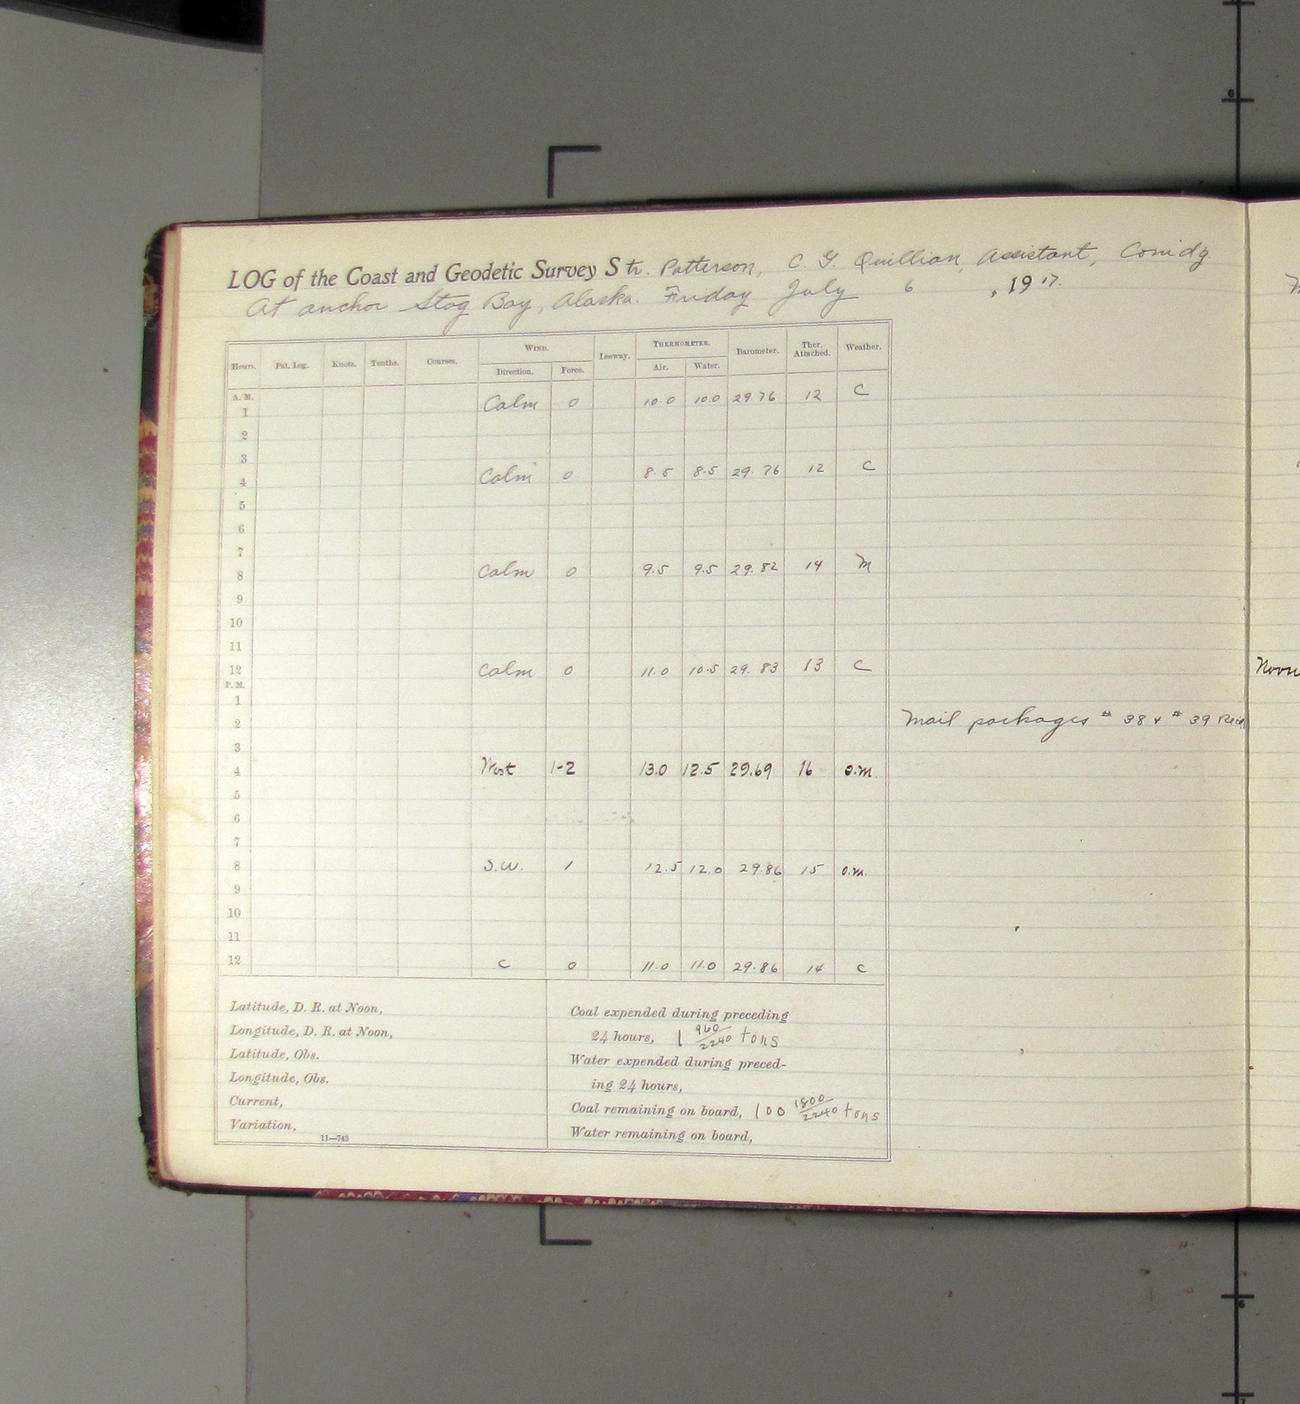 LOG of the Coast and Geodetic Survey Str. Patterson, C. G. Quillian, Assistant, Comdg
At anchor Stag Bay, Alaska. Friday July 6, 1917.
Hours. Pat. Log. Knots. Tenths. Courses. WIND. Leeway. THERMOMETER. Barometer. Ther. Attached. Weather.
Direction. Force. Air. Water.
A. M.
1 Calm 0 10.0 10.0 29.76 12 C
2
3
4 Calm 0 8.5 8.5 29.76 12 C
5
6
7
8 Calm 0 9.5 9.5 29.82 14 M
9
10
11
12 Calm 0 11.0 10.5 29.83 13 C
P. M.
1
2 Mail packages # 38 & # 39 Recd
3
4 West 1-2 13.0 12.5 29.69 16 o.m.
5
6
7
8 S.W. 1 12.5 12.0 29.86 15 o.m.
9
10
11
12 C 0 11.0 11.0 29.86 14 C
Latitude, D. R. at Noon,
Longitude, D. R. at Noon,
Latitude, Obs.
Longitude, Obs.
Current,
Variation,
11—743
Coal expended during preceding
24 hours, 1 960/2240 tons
Water expended during preced-
ing 24 hours,
Coal remaining on board, 100 1800/2240 tons
Water remaining on board,
Noon
6
6